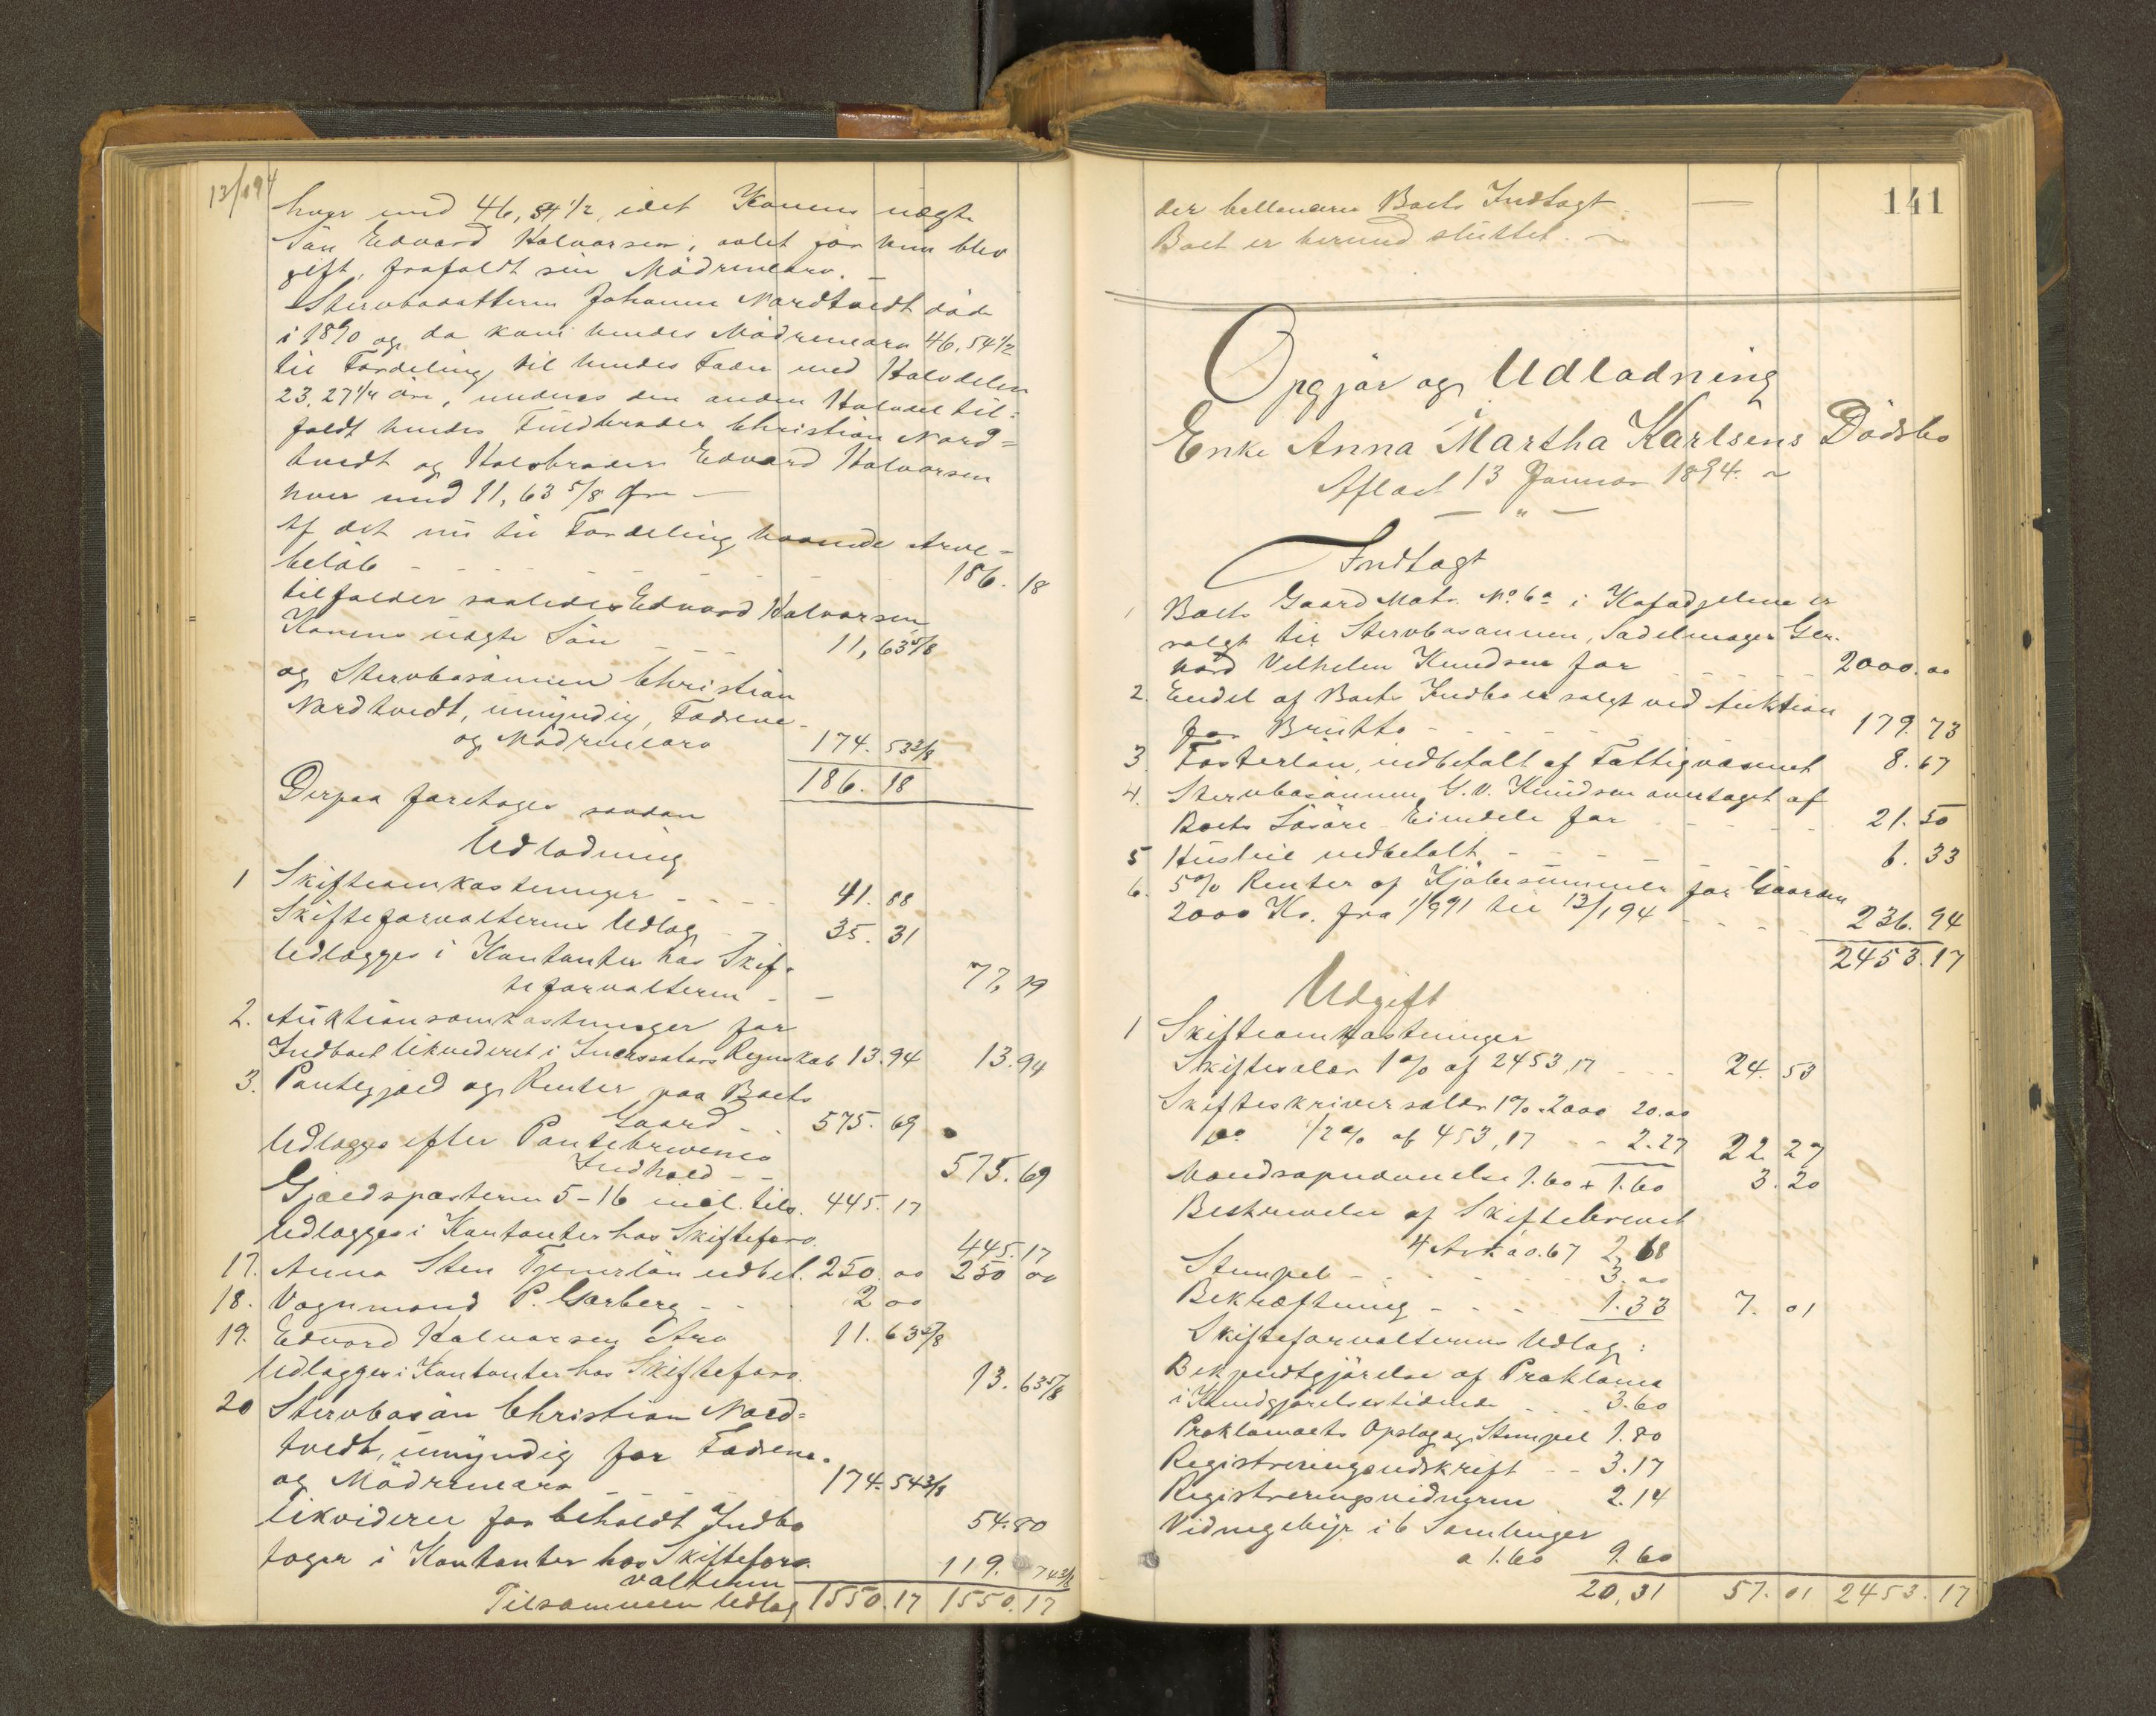 13/1 94
hver med 46,54 1/2, idet Konens uægte
Sön Edvard Halvorsen, avlet för hun blev
gift, frafaldt sin Mödrenearv. –
Stervbodatteren Johanne Nordtvedt döde
i 1890 og da kom hendes Mödrenearv 46,54 1/2
til Fordeling til hendes Fader med Halvdelen
23,27 1/4 öre, medens den anden Halvdel til=
faldt hendes Fuldbroder Christian Nord=
tvedt og Halvbroder Edvard Halvorsen
hver med 11,63 5/8 Öre –
Af det nu til Fordeling havende Arve-
belöb - - - - - - 186. 18
tilfalder saaledes Edvard Halvorsen,
Konens uægte Sön - - - 11,63 5/8
og Stervbosönnen Christian
Nordtvedt, umyndig, Fædrene-
og Mödrenearv 174. 53 2/8
186. 18
Derpaa foretoges saadan
Udlodning
1 Skifteomkostninger - - - - 41. 88
Skifteforvalterens Udlæg - 35. 31
Udlægges i Kontanter hos Skif-
teforvalteren - - 77, 19
2. Auktionsomkostninger for
Indboet likvideret i Incassators Regnskab 13.94 13.94
3. Pantegjæld og Renter paa Boets
Gaard - - 575. 69
Udlægges efter Pantebrevenes
Indhold - - 575. 69
Gjældsposterne 5-16 incl. tils. 445. 17
Udlægges i Kontanter hos Skifteforv. 445. 17
17. Anna Sten Tjenerlön udbet. 250. 00 250 00
18. Vognmand P. Garberg - - 2 00
19. Edvard Halvorsen Arv 11. 63 5/8
Udlægges i Kontanter hos Skifteforv. 13. 63 5/8
20 Stervbosön Christian Nord=
tvedt, umyndig for Fædrene-
og Mödrenearv - - - - 174. 54 3/8
likviderer for beholdt Indbo 54. 80
tager i Kontanter hos Skifteforv.
valteren 119. 74 3/8
Tilsammen Udlæg 1550.17 1550.17
141
der balancerer Boets Indtægt. –
Boet er hermed sluttet. –
Opgjör og Udlodning
Enke Anna Martha Karlsens Dödsbo
Aflæst 13 Januar 1894. –
– " –
Indtægt
1 Boets Gaard Matr. No 6a i Kafadjelene er
solgt til Stervbosönnen, Sadelmager Ger-
hard Vilhelm Knudsen for - - - - 2000. 00
2. Endel af Boets Indbo er solgt ved Auktion
for Brutto - - - - - - 179. 73
3. Fosterlön, indbetalt af Fattigvæsenet 8. 67
4. Stervbosönnen G. V. Knudsen overtaget af
Boets Lösöre Eiendele for - - - - 21. 50
5 Husleie indbetalt - - - - - - 6. 33
6. 5% Renter af Kjöbesummen for Gaarden
2000 Kr. fra 1/9 91 til 13/1 94 - - - - 236. 94
2453. 17
Udgift
1 Skifteomkostninger
Skiftesalær 1% af 2453,17 - - 24. 53
Skifteskriversalær 1% 2000 20.00
do 1/2% af 453,17 - - 2.27 22. 27
Mandsopnævnelse 1.60 + 1.60 3. 20
Beskrivelse af Skiftebrevet
4 Ark à 0.67 2,68
Stempel - - - - - - 3. 00
Bekræftning - - - - 1. 33 7. 01
Skifteforvalterens Udlæg:
Bekjendtgjörelse af Proklama
i Kundgjörelsestidende - - - 3.60
Proklamaets Opslag og Stempel 1.80
Registreringsudskrift - - 3.17
Registreringsvidnerne 2.14
Vidnegebyr i 6 Samlinger
a 1.60 9.60
20,31 57. 01 2453. 17